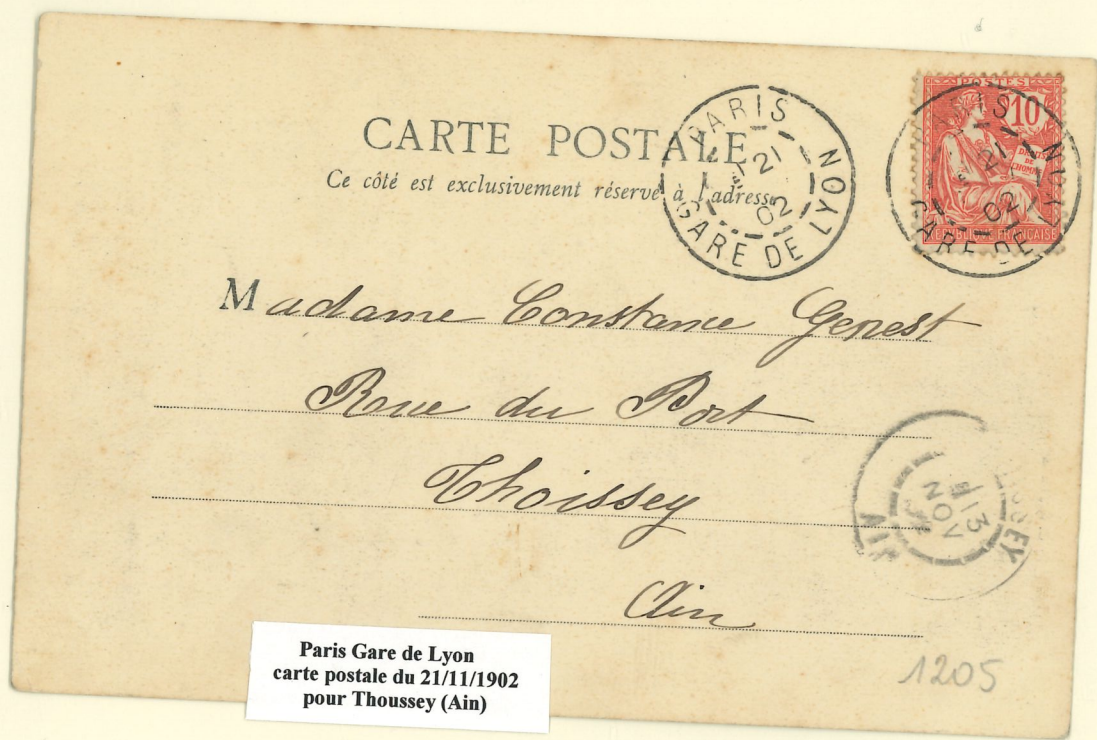 CARTE POSTALE
Ce côté est exclusivement réservé à l'adresse
PARIS
21
02
GARE DE LYON
POSTES
10
DROITS DE L'HOMME
REPUBLIQUE FRANÇAISE
PARIS
21
02
GARE DE LYON
Madame Constance Genest
Rue du Port
Thoissey
Ain
13
NOV
SSEY
AIN
1205
Paris Gare de Lyon
carte postale du 21/11/1902
pour Thoussey (Ain)